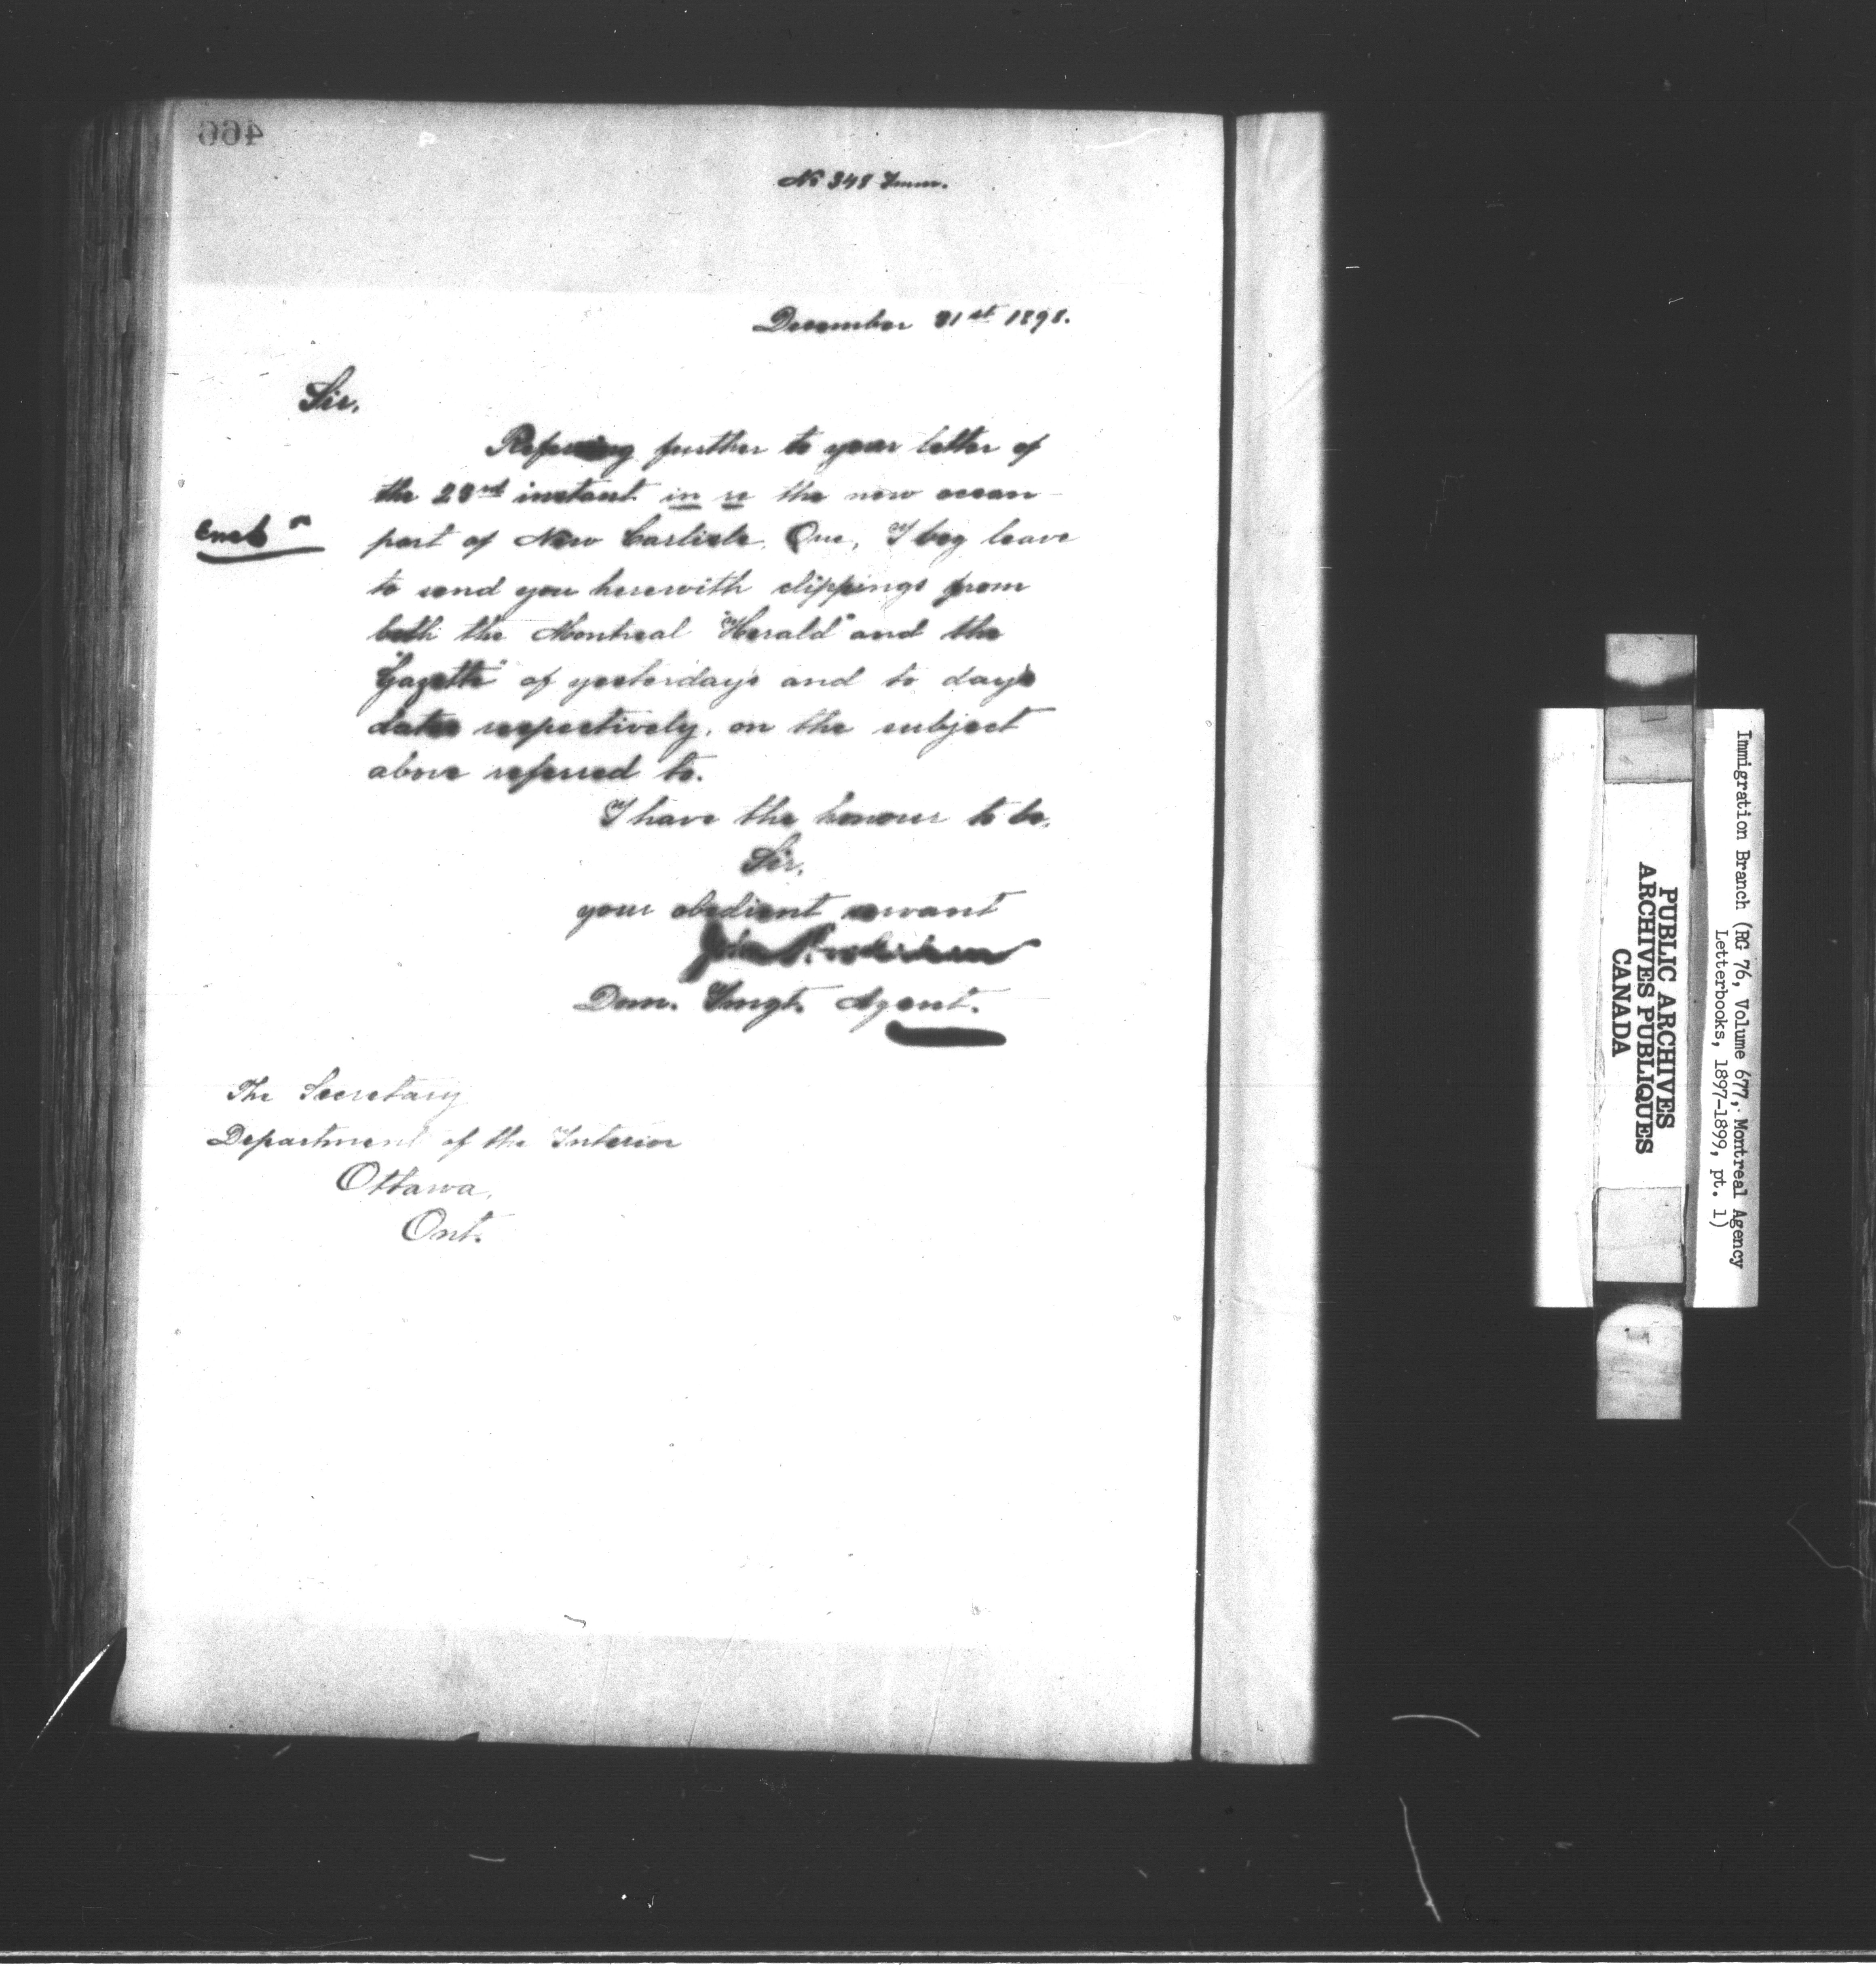 466
No 348 Imm.
December 31st 1898.
Sir,
Referring further to your letter of
the 23rd instant in re the new ocean
Encl
port of New Carlisle, Que, I beg leave
to send you herewith clippings from
both the Montreal "Herald" and the
"Gazette" of yesterday's and to day's
dates respectively, on the subject
above referred to.
I have the honour to be,
Sir,
your obedient servant
John
Dom. Imgt. Agent.
The Secretary
Department of the Interior
Ottawa,
Ont.
Immigration Branch (RG 76, Volume 677, Montreal Agency
Letterbooks, 1897-1899, pt. 1)
PUBLIC ARCHIVES
ARCHIVES PUBLIQUES
CANADA